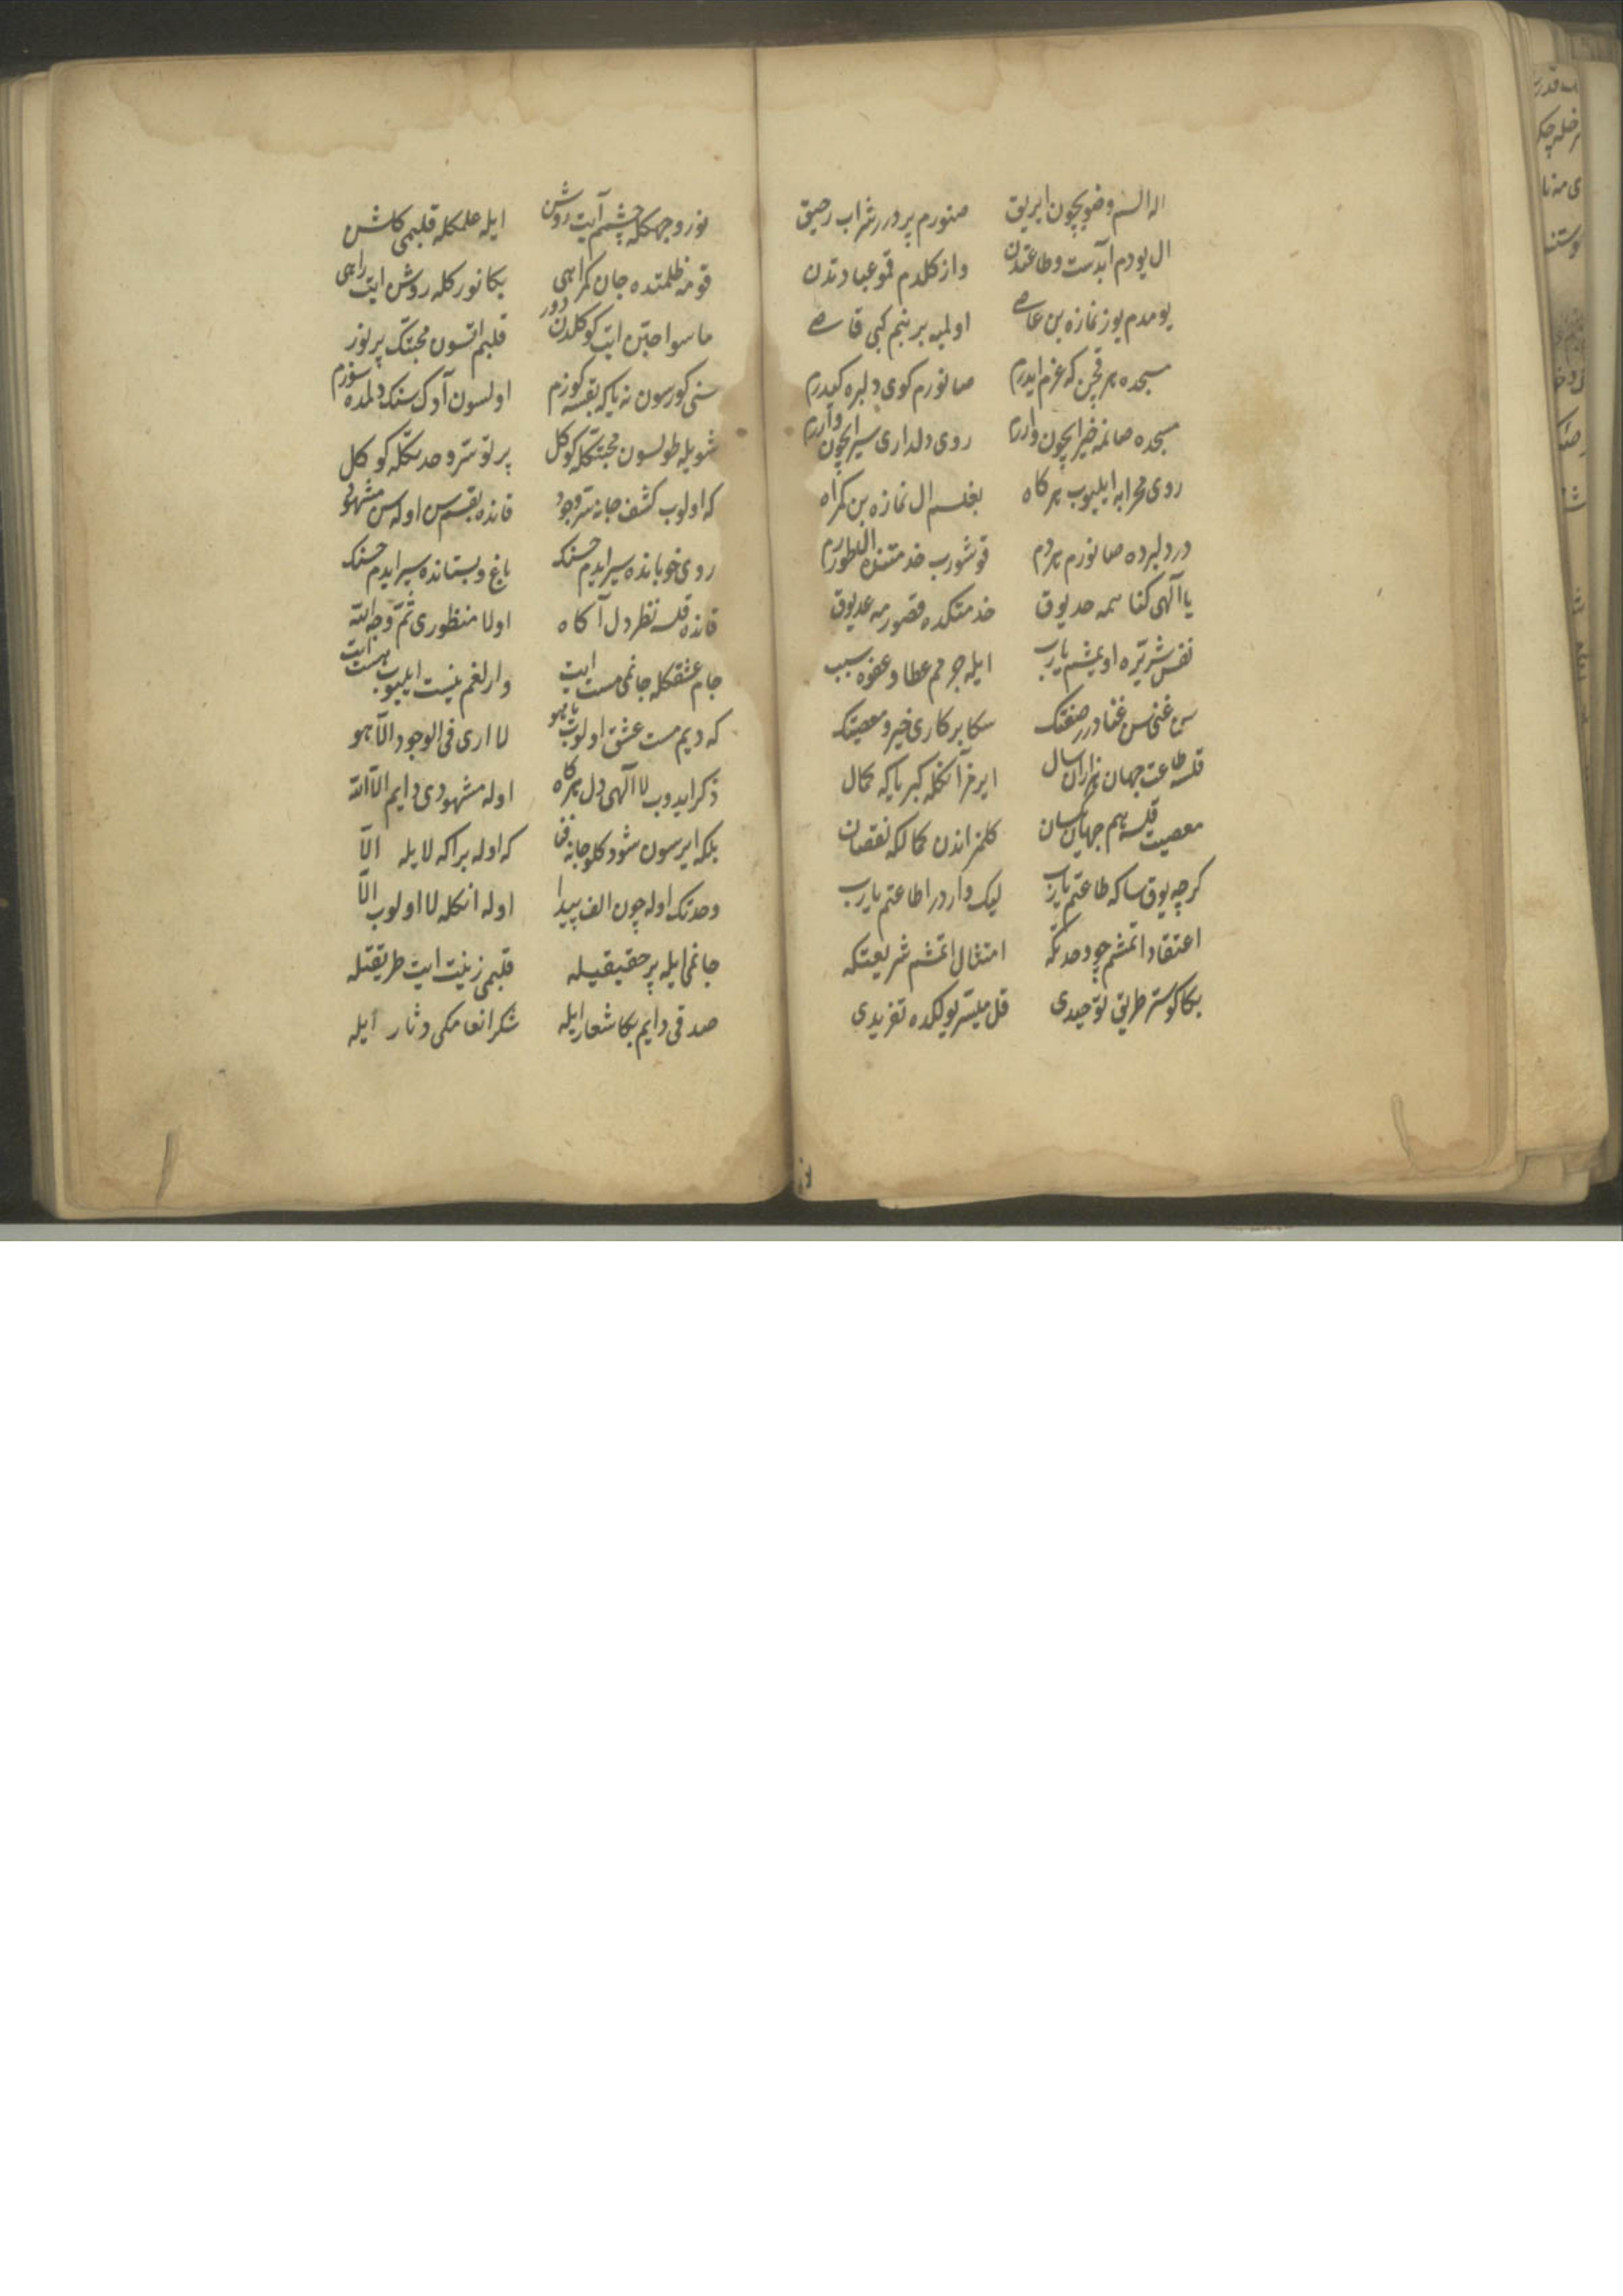 اله السم وضو ایچون ابریق صنورم پر درر شراب رحیق
ال یودم آبدست وطاعتدن واز کلدم قمو عبادتدن
یومدم یوز نمازه بن عاصی اولمیه بر بنم کبی قاصی
مسجده هر قچن که عزم ایدرم صانورم کوی دلبره کیدرم
مسجده صانمه خیر ایچون واررم روی دلداری سیر ایچون واررم
روی محرابه ایلیوب هر کاه بغلسم ال نمازه بن کمراه
در دلبرده صانورم هردم قوشورب خدمتنده ال طوررم
یا الهی کناهمه حد یوق خدمتکده قصورمه عد یوق
نفس شریره اویمشم یارب ایله جرمم عطا وعفوه سبب
سن غنی سن غنا درر صفتک سکا بر کاری خیر ومعصیتک
قلسه طاعت جهان هزاران سال ایرمز آنکله کبریاکه کمال
معصیت قلسه هم جهان یکسان کلمز اندن کمالکه نقصان
کرچه یوق ساکه طاعتم یارب لیک واردر اطاعتم یارب
اعتقاد اتمشم چو وحدتکه امتثال اتمشم شریعتکه
بکا کوستر طریق توحیدی قل میسر یولکده تفریدی
نور وجهکله چشمم آیت روشن ایله علمکله قلبمی کلشن
قومه ظلمتده جان کمراهی بکا نورکله روشن ایت راهی
ماسوا حبن ایت کوکلدن دور قلبم اتسون محبتک پر نور
سنی کورسون نه یاکه بقسه کوزم اولسون آدک سنک دلمده سوزم
شویله طولسون محبتکله کوکل پرتو سر وحدتکله کوکل
که اولوب کشف جانه سر وجود قانده بقسم سن اوله سن مشهود
روی خوبانده سیر ایدم حسنک باغ وبستانده سیر ایدم حسنک
قانده قلسه نظر دل آکاه اولا منظوری ثم وجه الله
جام عشقکله جانمی مست ایت وارلغم نیست ایلیوب هست ایت
که دیم مست عشق اولوب یا هو لا اری فی الوجود الا هو
ذکر ایدوب لا الهی دل هر کاه اوله مشهودی دایم الا الله
بلکه ایرسون شو دکلو جانه فنا که اوله براکه لا یله الا
وحدتک اوله چون الف پیدا اوله انکله لا اولوب الا
جانمی ایله پر حقیقیله قلبمی زینت ایت طریقتله
صدقی دایم بکا شعار ایله شکر انعامکی دثار ایله